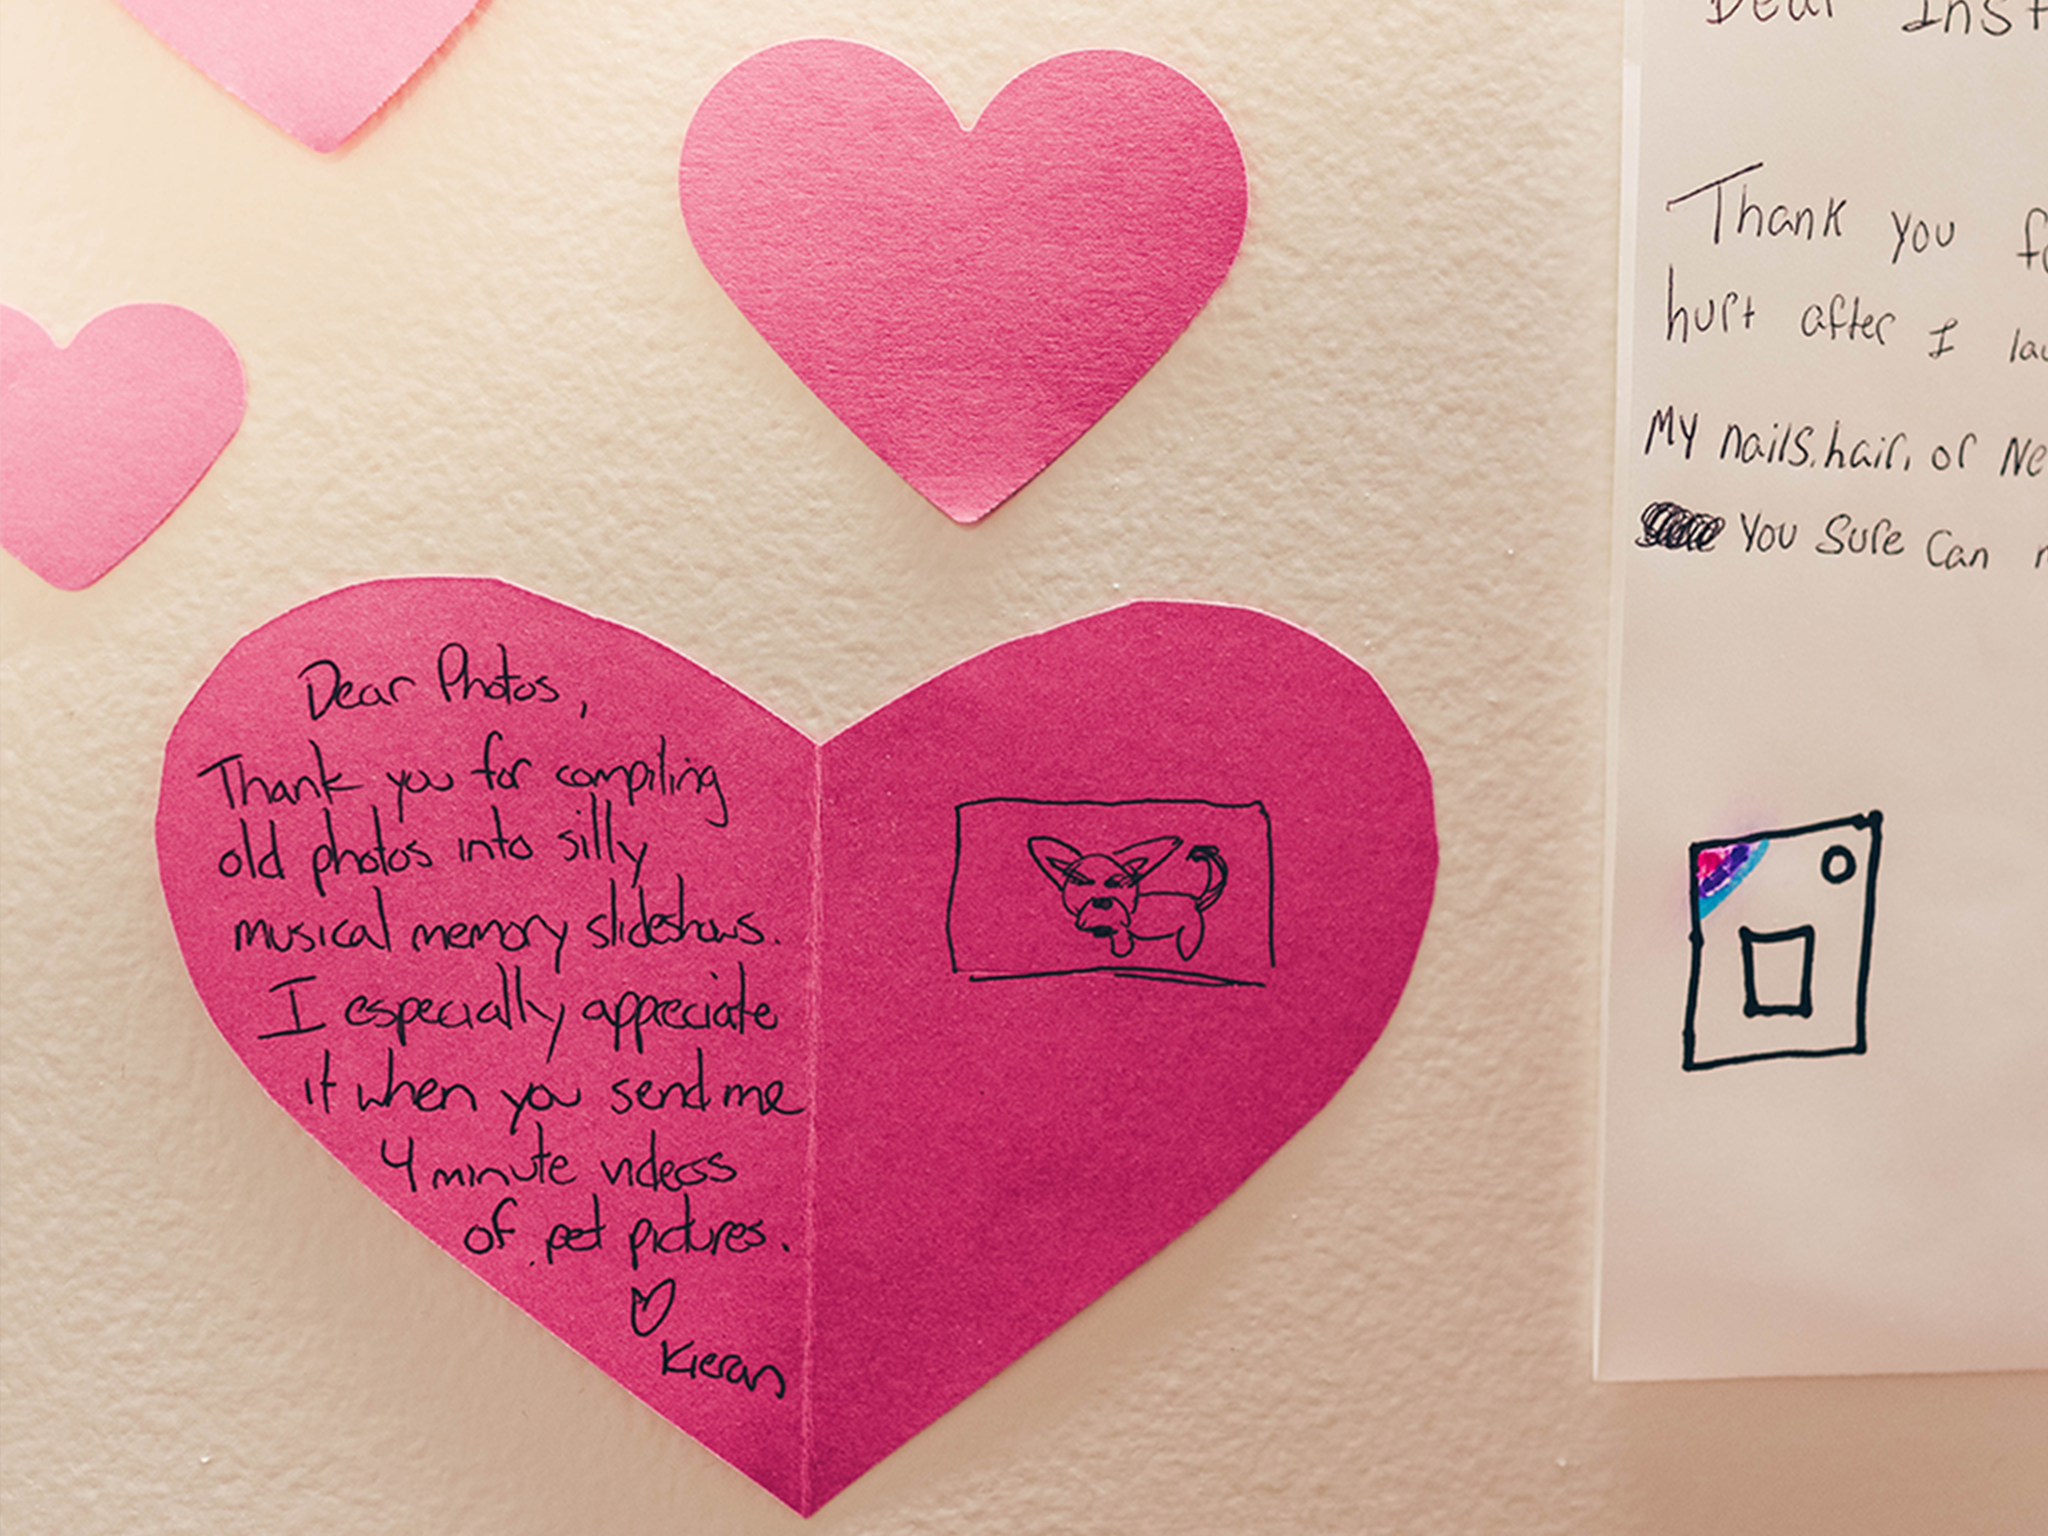 Dear Photos,
Thank you for compiling
old photos into silly
musical memory slideshows.
I especially appreciate
it when you send me
4 minute videos
of pet pictures.
Kieran
Dear
Thank you
hurt after I
My nails, hair, or
You sure can